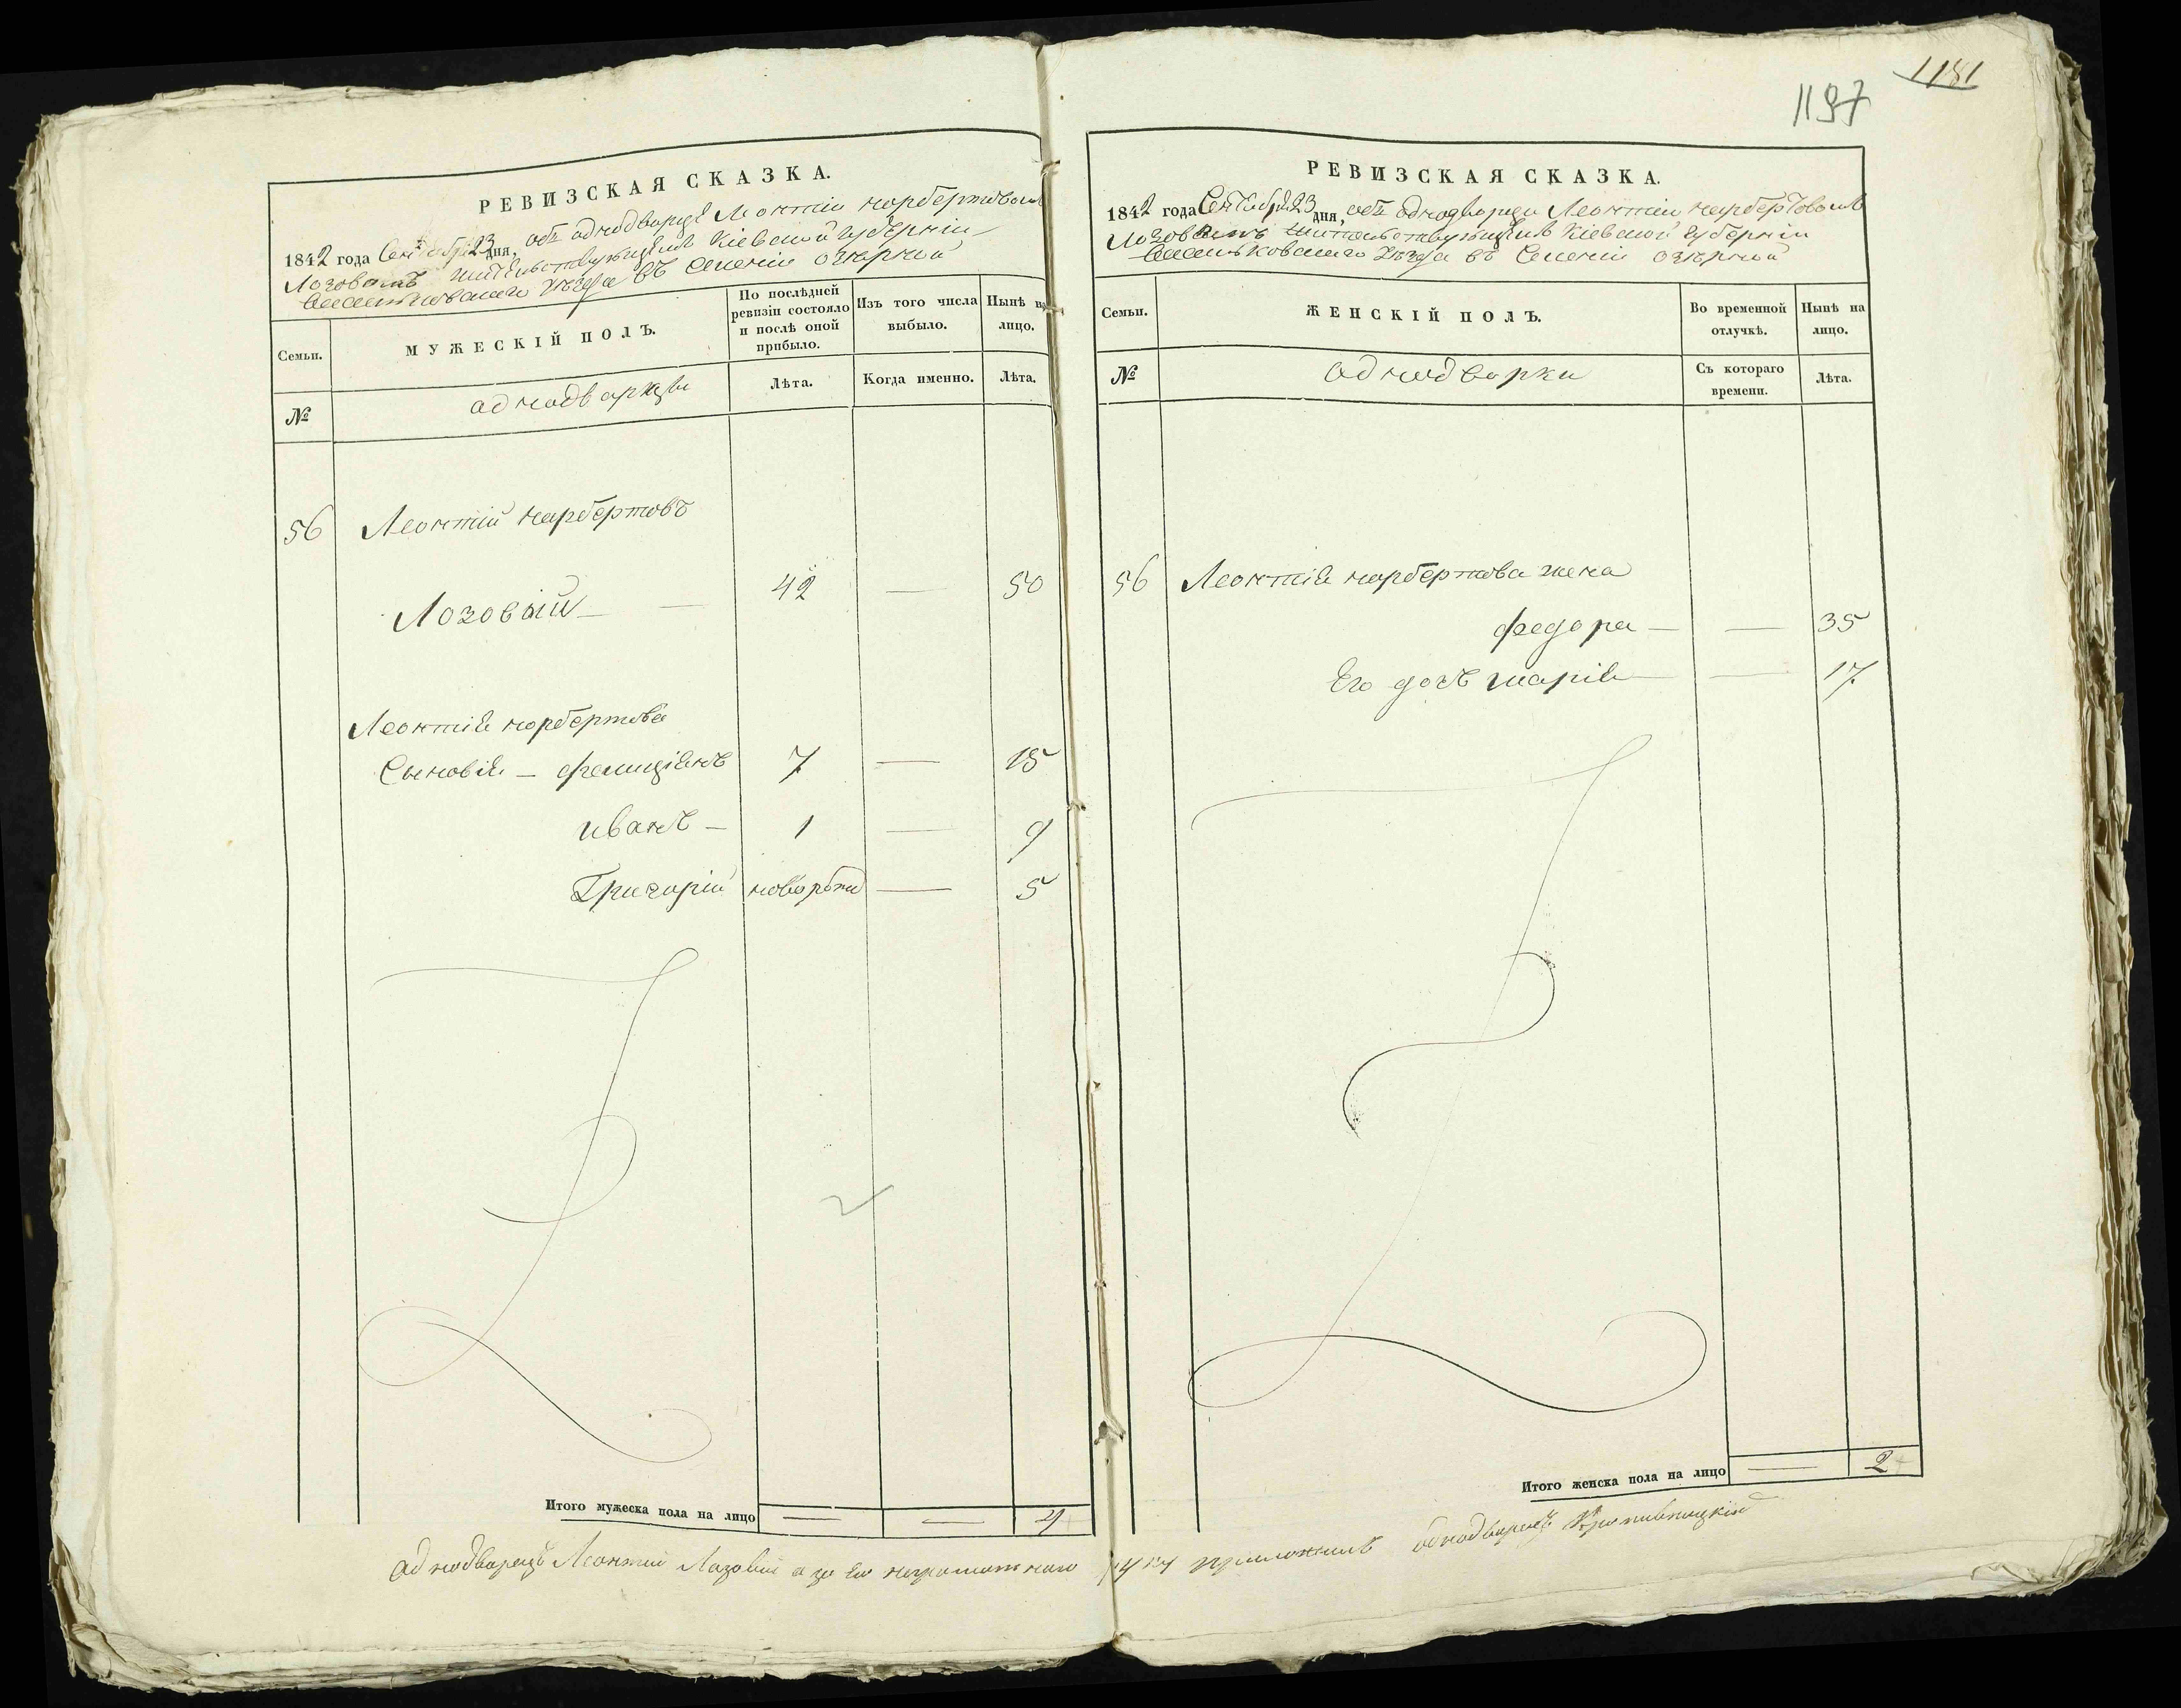 1181
1197
РЕВИЗСКАЯ СКАЗКА.
1842 года Сентября 23 дня, объ однодворцѣ Леонтіи Норбертовомъ
Лозовомъ жительствующемъ Кіевской губерніи
Васильковскаго уѣзда въ Селеніи Озерной
Семьи.
МУЖЕСКІЙ ПОЛЪ.
По послѣдней ревизіи состояло и послѣ оной прибыло.
Изъ того числа выбыло.
Нынѣ на лицо.
№
однодворцы
Лѣта.
Когда именно.
Лѣта.
56 Леонтій Норбертовъ
Лозовый — 42 — 50
Леонтія Норбертова
Сыновія — Фелиціянъ 7 — 15
Иванъ — 1 — 9
Григорій новорожд — 5
Итого мужеска пола на лицо — — 4
РЕВИЗСКАЯ СКАЗКА.
1842 года Сентября 23 дня, объ однодворцѣ Леонтіи Норбертовомъ
Лозовомъ жительствующемъ Кіевской губерніи
Васильковскаго уѣзда въ Селеніи Озерной
Семьи.
ЖЕНСКІЙ ПОЛЪ.
Во временной отлучкѣ.
Нынѣ на лицо.
№
однодворки
Съ котораго времени.
Лѣта.
56 Леонтія Норбертова жена
Федора — — 35
Его дочь Марія — — 17
Итого женска пола на лицо — 2
Однодворецъ Леонтій Лозовый а за его неграмотнаго руку приложилъ однодворецъ Кропивницкій